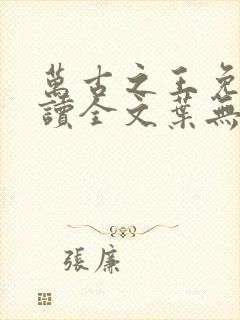 萬古之王免
讀全文葉無
張廉